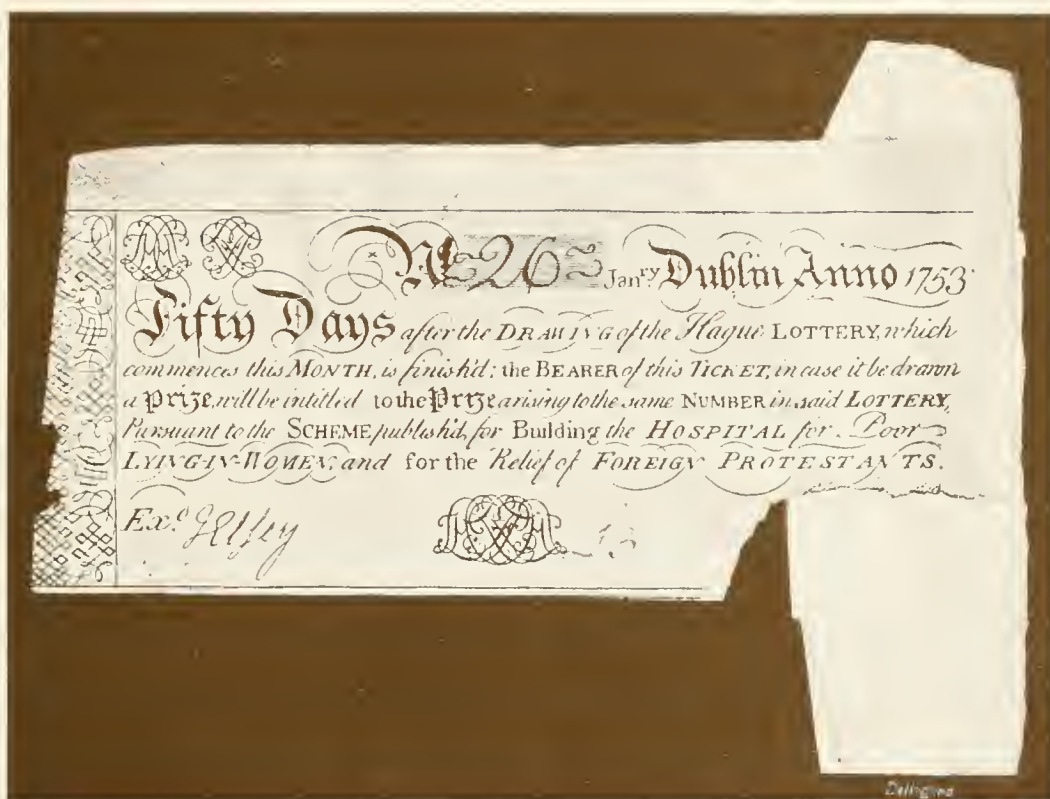 No 26 Janry. Dublin Anno 1753
Fifty Days after the DRAWING of the Hague LOTTERY, which
commences this MONTH, is finish'd; the BEARER of this TICKET, in case it be drawn
a Prize, will be intitled to the Prize arising to the same NUMBER in said LOTTERY,
Pursuant to the SCHEME publish'd, for Building the HOSPITAL for Poor
LYING-IN-WOMEN; and for the Relief of FOREIGN PROTESTANTS.
Exd.